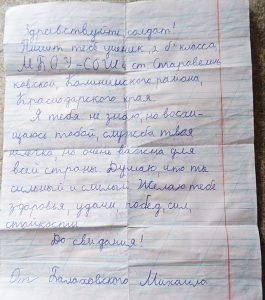 Здравствуйте, солдат!
Пишет тебе ученик, 2 "б" класса,
МКОУ-СОШ ст. Старовелич
ковской, Калининского района,
Краснодарского края.
Я тебя не знаю, но восхи-
щаюсь тобой, служба твоя
нелегка, но очень важна для
всей страны. Думаю, что ты
сильный и смелый. Желаю тебе
здоровья, удачи, побед, сил,
стойкости.
До свидания!
От Балаховского Михаила